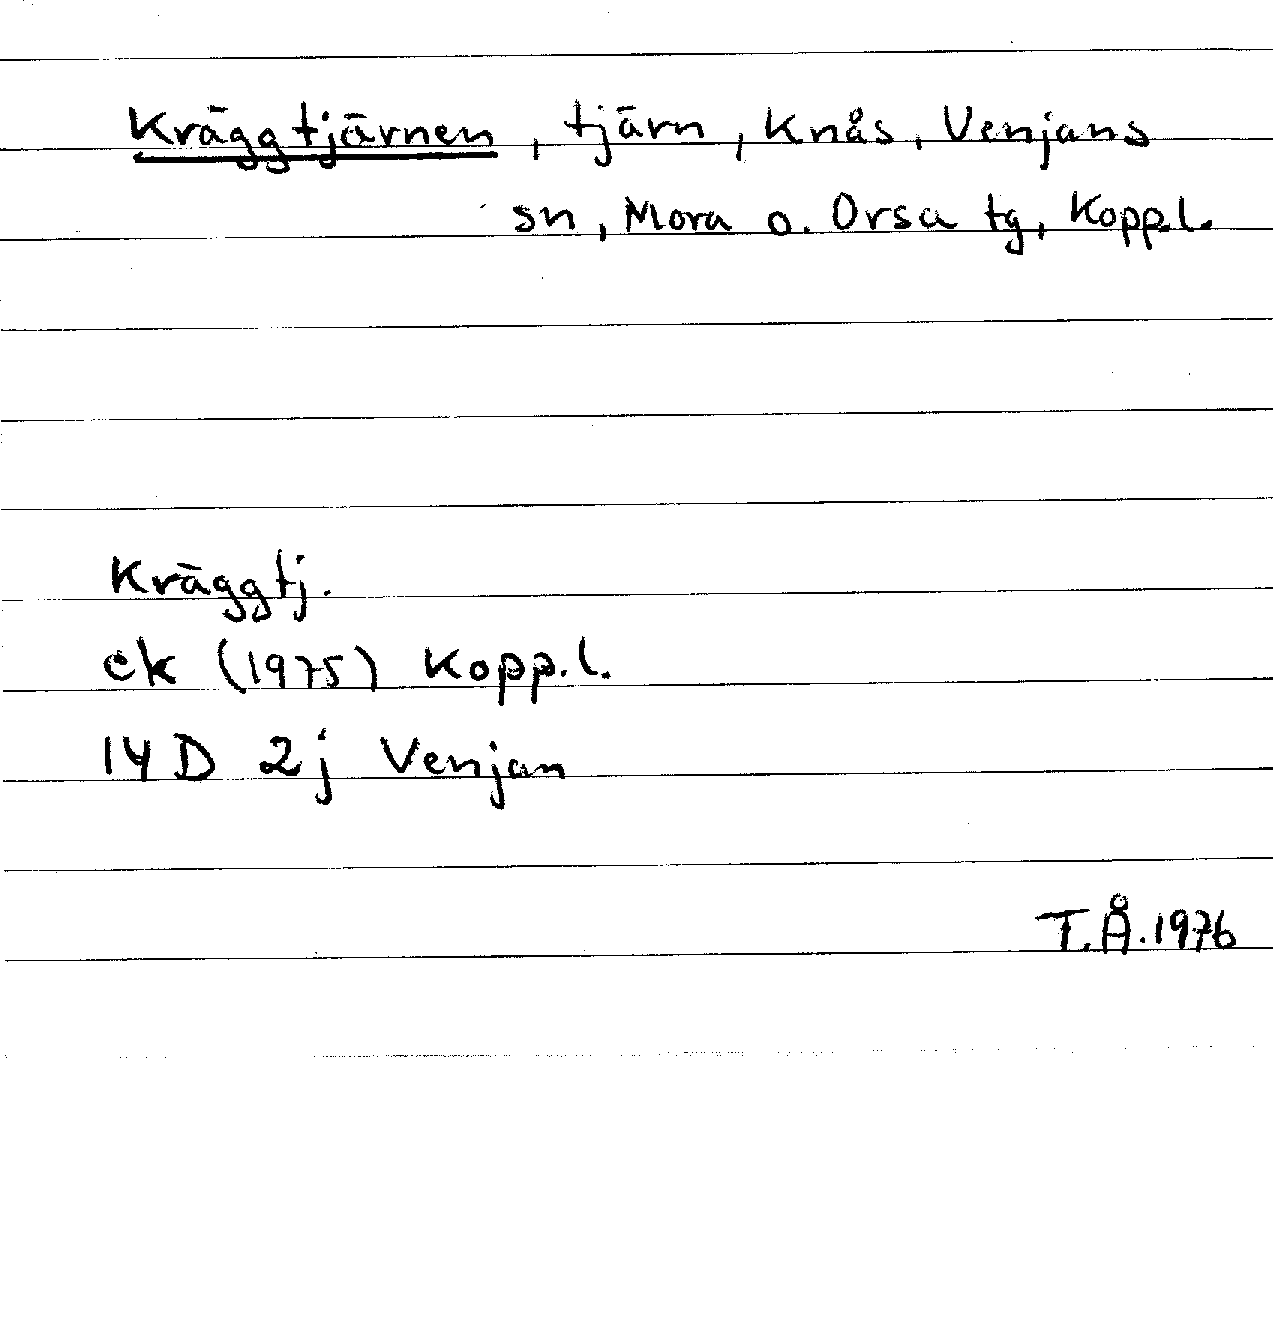 Kräggtjärnen, tjärn, Knås, Venjans
sn, Mora o. Orsa tg, Kopp.l.
Kräggtj.
ek (1975) Kopp.l.
14 D 2j Venjan
T.Å.1976